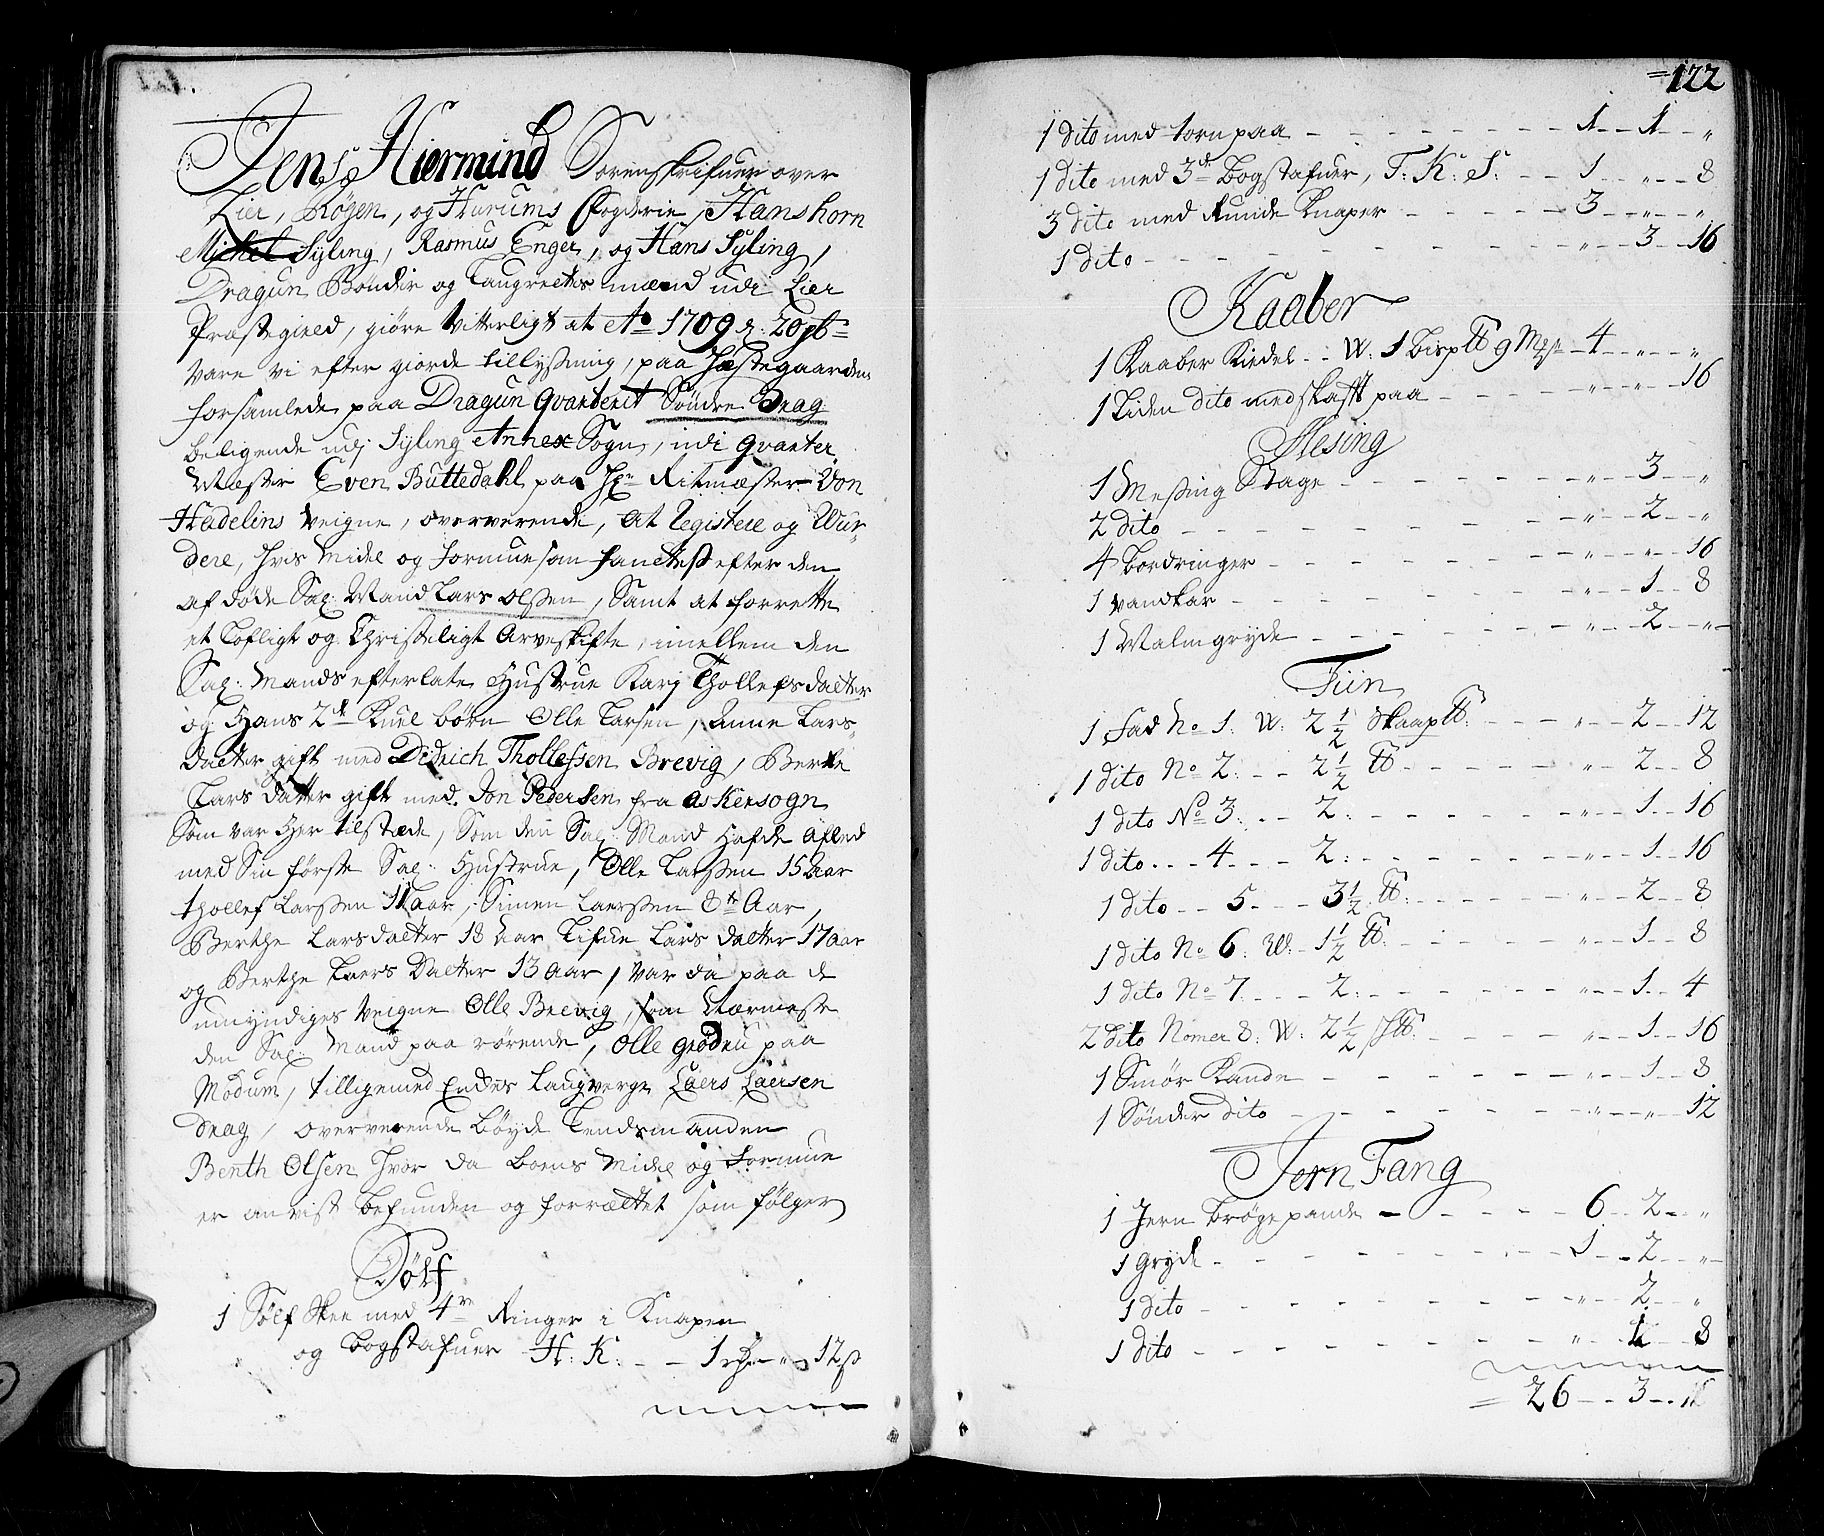 Jens Hiermind Sorenskrifuer over
Lier, Røgen, og Hurums Fogderie, Hans horn
Michel Sÿling, Rasmus Enger, og Hans Sÿling,
Dragun Bønder og Laugrettes mænd udi Lier
Præstegield, giøre Vitterligt at Ao 1709 d: 20
Vare vi efter giorde tillysning, paa Fæstegaarden
forsamlede paa Dragun Qvarteret Søndre Drag
beligende udj Sÿling Annex Sogn, udi Qvarter
Mæster Even Buttedahl paa Hr Ritmæster Von
Hadelins Veigne, oververende, at Registere og Wur-
dere, hvis Midel og formue som fandtes efter den
af døde Sal: Mand Lars Olssen, Samt at forrette
et Lofligt og Christeligt Arveskifte, imellem den
Sal: Mands efterlate Hustrue Karj Thollefsdatter
og Hans 2de Kuel børn Olle Larsen, Anne Lars-
datter gift med Didrich Thollefsen Brevig, Berte
Lars datter gift med Jon Pedersen fra Askersogn
Som var her tilstæde, Som den Sal: Mand hafde Afled
med Sin første Sal: Hustrue, Olle Larssen 15 Aar
Thollef Larssen 11 aar, Simen Laerssen 8te Aar,
Berthe Larsdatter 18 Aar Lisue Lars datter 17 aar
og Berthe Laers Datter 13 Aar, Var da paa de
umyndiges Veigne Olle Brevig, som Nærmeste
den Sal: Mand paa rørende, Olle grodeu paa
Modum, tilligemed Enckes Laugverge Laers Laersen
drag, oververende Bøyde Lendsmanden
Benth Olsen Hvor da boens Midel og formue
er anvist befunden og forrættet som følger
Sølf
1 Sølf Skee med 4re Ringer i Knapen
og bogstafuer H: K: - - 1 rd - " - 12 s
=122
1 dito med torn paa - - - 1 - 1 - "
1 dito med 3de Bogstafuer, T: K: S: - - 1 - " - 8
3 dito med Runde Knaper - - - 3 - " - "
1 dito - - - " - 3 - 16
Kaaber
1 Kaaber Kiedel - - W: 1 Bisp ℔ 9 - 4 - " - "
1 Liden dito med skaft paa - - - " - " - 16
Mesing
1 Messing Stage - - - " - 3 - "
2 dito - - - " - 2 - "
4 bordringer - - - " - " - 16
1 vandkar - - - " - 1 - 8
1 Malmgryde - - - " - 2 - "
Tiin
1 Fad No 1. W: 2 1/2 Skaap ℔: - - - " - 2 - 12
1 dito No 2: - - 2 1/2 ℔ - - - " - 2 - 8
1 dito No 3: - - 2: - - - " - 1 - 16
1 dito - - 4 - - 2: - - - " - 1 - 16
1 dito - - 5 - - 3 1/2 ℔: - - - " - 2 - 8
1 dito No 6: W: - 1 1/2 ℔: - - - " - 1 - 8
1 dito No 7 - - 2: - - - " - 1 - 4
2 dito Nomer 8: W: 2 1/2 ℔: - - - " - 1 - 16
1 Smør Kande - - - " - 1 - 8
1 Sønder dito - - - " - " - 12
Jern Fang
1 Jern brøgepande - - - 6 - 2 - "
1 gryde - - - 1 - 2 - "
1 dito - - - " - 2 - "
1 dito - - - " - 1 - 8
= 26 - 3 - 16